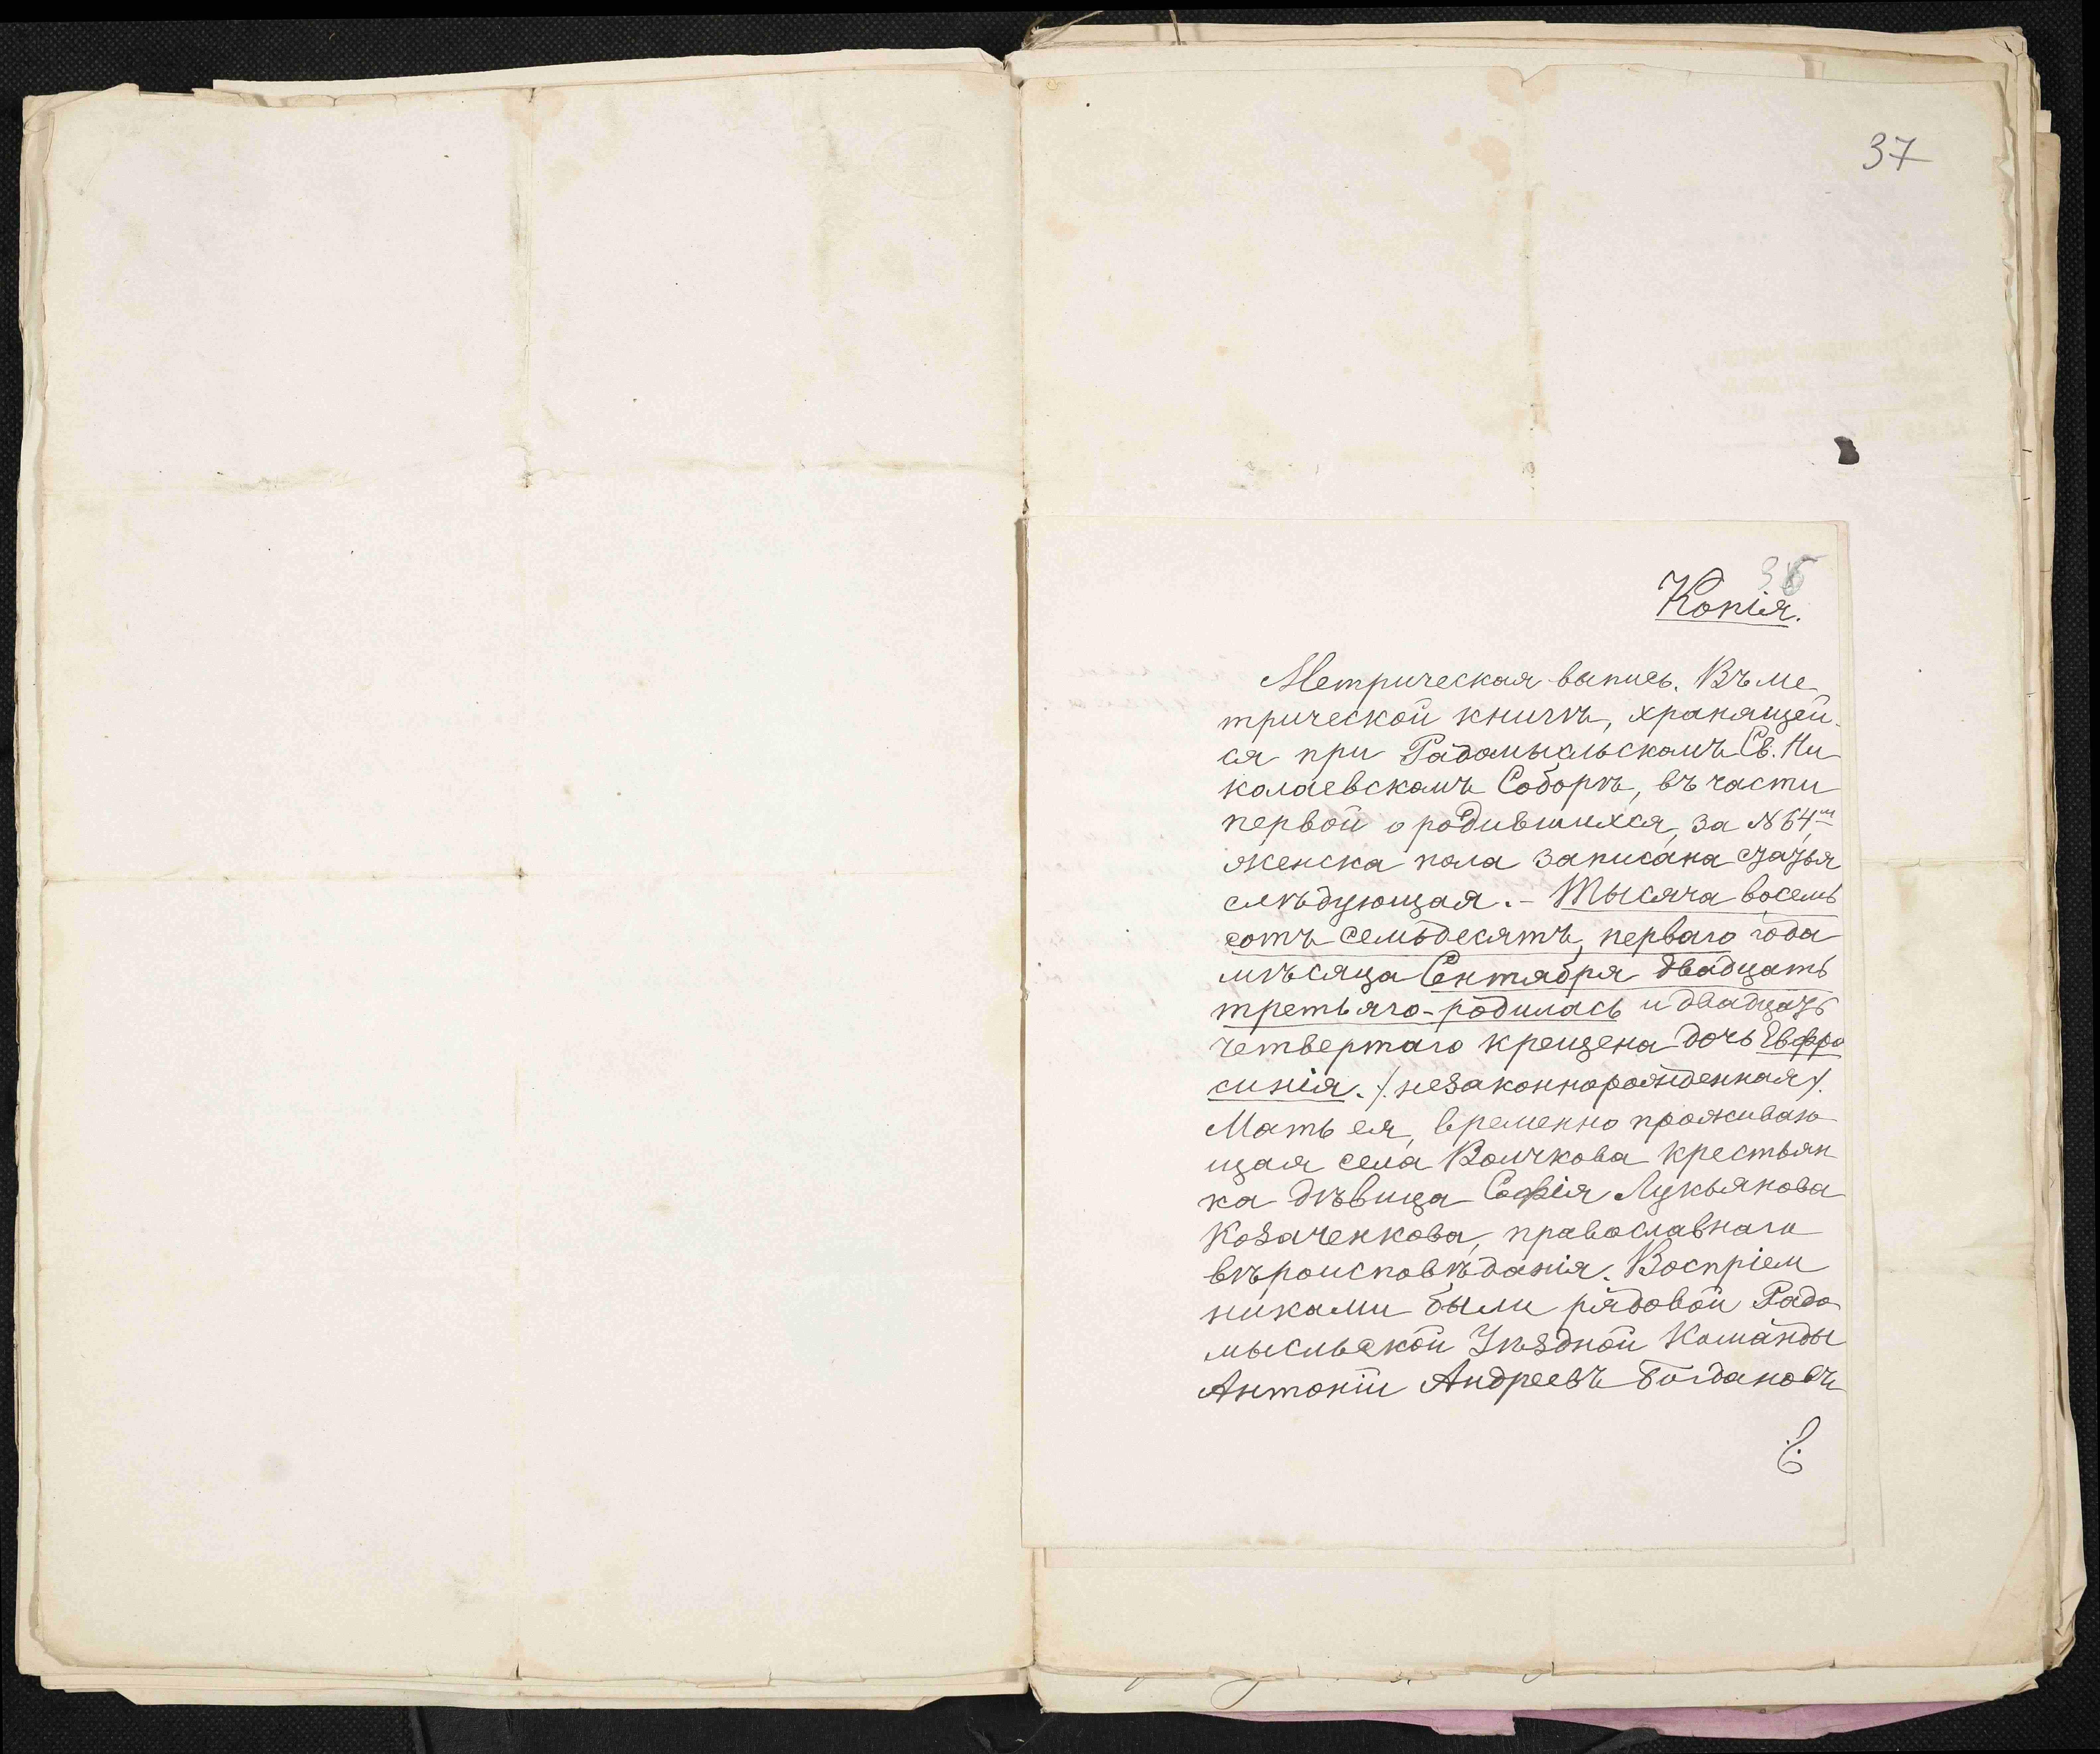 37
Копія.
Метрическая выпись. Въ ме
трической книгѣ, хранящей-
ся при Радомысльскомъ Св. Ни
колаевскомъ Соборѣ, въ части
первой о родившихся, за № 64,
женска пола записана статья
слѣдующая. – Тысяча восемь
сотъ семьдесятъ перваго года
мѣсяца Сентября двадцать
третьяго - родилась и двадцать
четвертаго крещена дочь Евфро
синія. /:незаконнорожденная/:
Мать ея, временно проживаю
щая села Волчкова крестьян
ка дѣвица Софія Лукьянова
Козаченкова, православнаго
вѣроисповѣданія. Воспріем
никами были рядовой Радо
мысльской Уѣздной Команды
Антоній Андреевъ Богдановъ